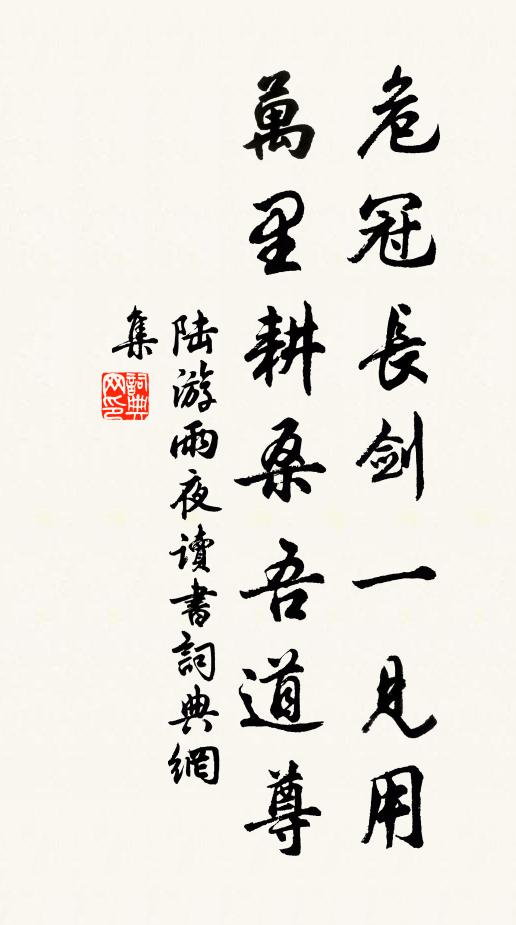 危冠長劍一見用
萬里耕桑吾道尊
陆游雨夜讀書詞典網
集
詞典
网印